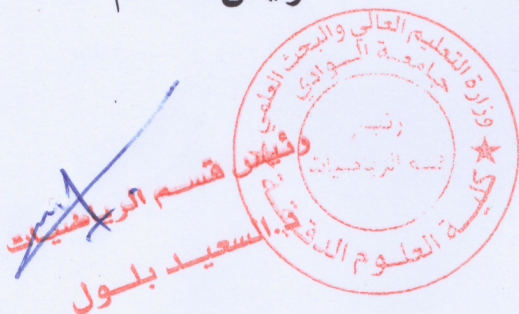 وزارة التعليم العالي والبحث العلمي
جامعة الوادي
رئيس
قسم الرياضيات
كلية العلوم الدقيقة
رئيس قسم الرياضيات
السعيد بلول